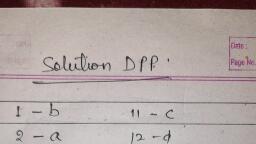 Date:
Page No.
Solution DPP:
1 - b 11 - c
2 - a 12 - d